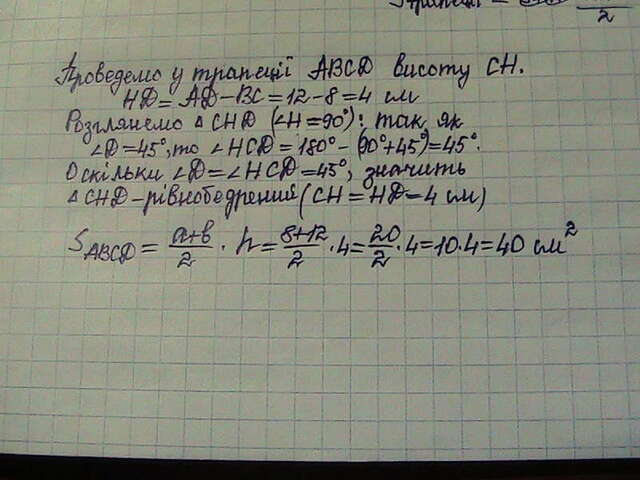 2
Проведемо у трапеції ABCD висоту CH.
HD = AD - BC = 12 - 8 = 4 см
Розглянемо △ CHD (∠H = 90°): так як
∠D = 45°, то ∠HCD = 180° - (90° + 45°) = 45°.
Оскільки ∠D = ∠HCD = 45°, значить
△ CHD - рівнобедрений (CH = HD = 4 см)
S_ABCD = (a+b)/2 · h = (8+12)/2 · 4 = 20/2 · 4 = 10 · 4 = 40 см²